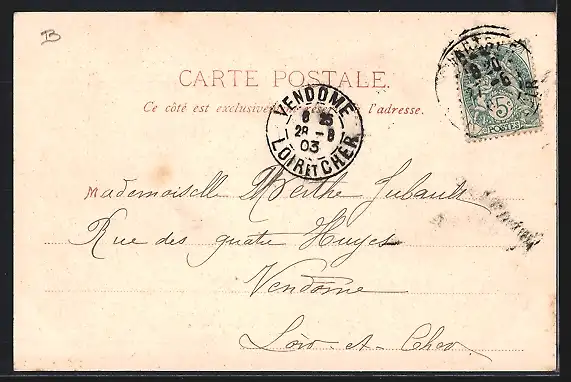 B
CARTE POSTALE.
Ce côté est exclusivement réservé à l'adresse.
VENDOME
8 25
28 - 8
03
LOIR ET CHER
5c
POSTES
Mademoiselle Berthe Jubault
Rue des quatre Huyes
Vendome
Loir-et-Cher